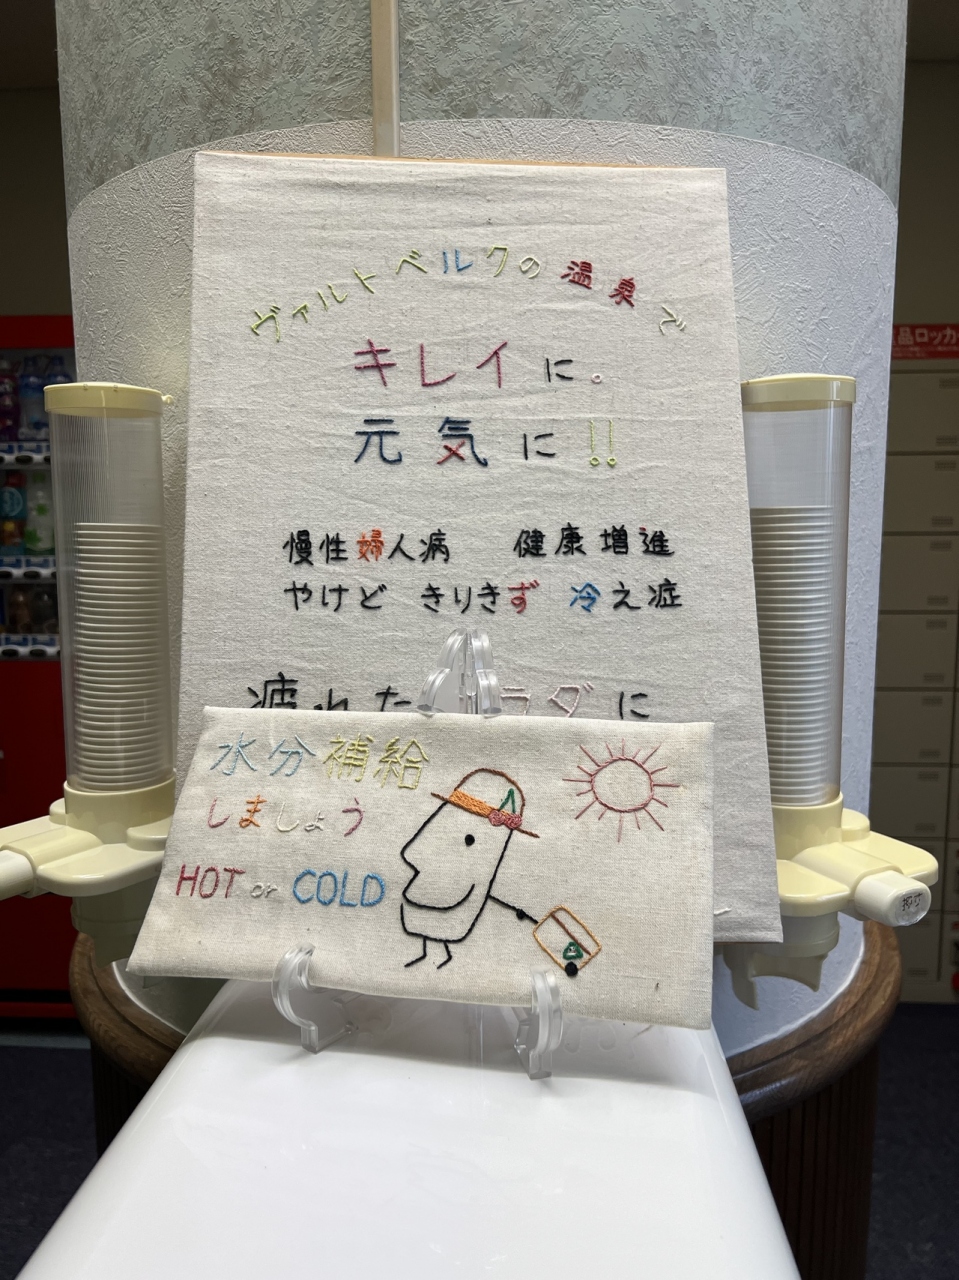 ヴァルトベルクの温泉で
キレイに。
元気に!!
慢性婦人病 健康増進
やけど きりきず 冷え症
疲れた ラダに
水分補給
しましょう
HOT or COLD
品ロッカ
押す